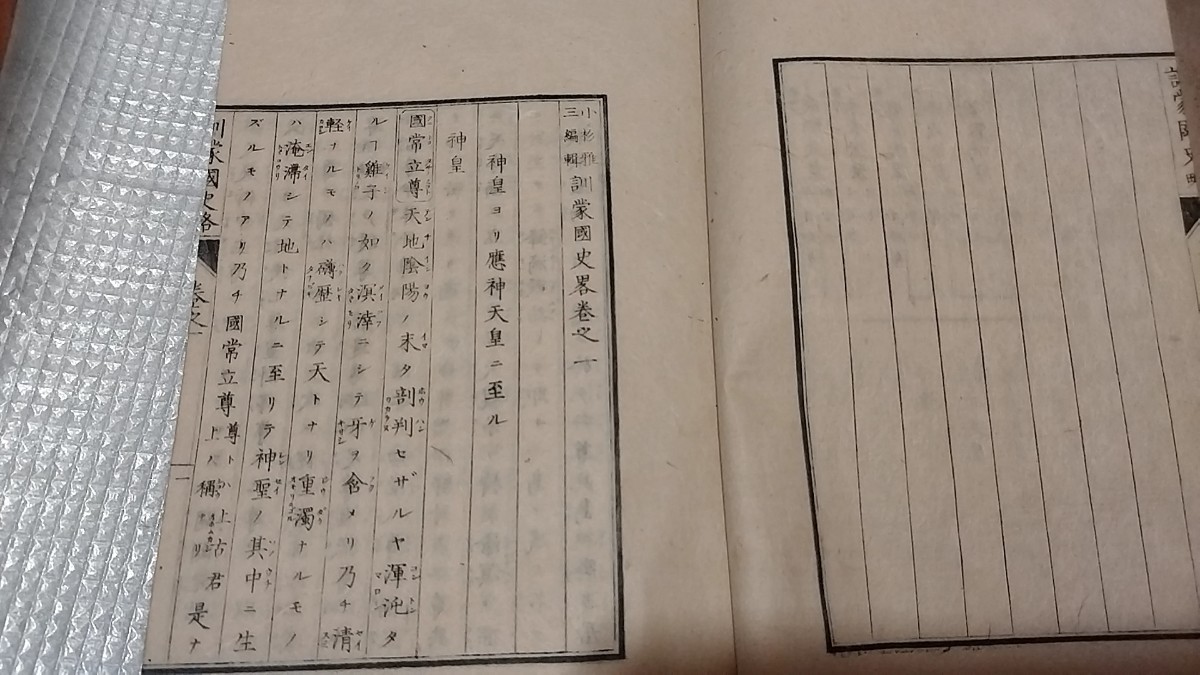 訓蒙國史
小杉雅三編輯 訓蒙國史畧卷之一
神皇ヨリ應神天皇ニ至ル
神皇
國常立尊 天地陰陽ノ未タ剖判セザルヤ渾沌タ
ルヿ雞子ノ如ク溟涬ニシテ牙ヲ含メリ乃チ清
軽ナルモノハ礴歴シテ天トナリ重濁ナルモノ
ハ淹滯シテ地トナルニ至リテ神聖ノ其中ニ生
ズルモノアリ乃チ國常立尊尊トハ上古君上ノ稱ナリ是ナ
訓蒙國史畧 卷之一 一